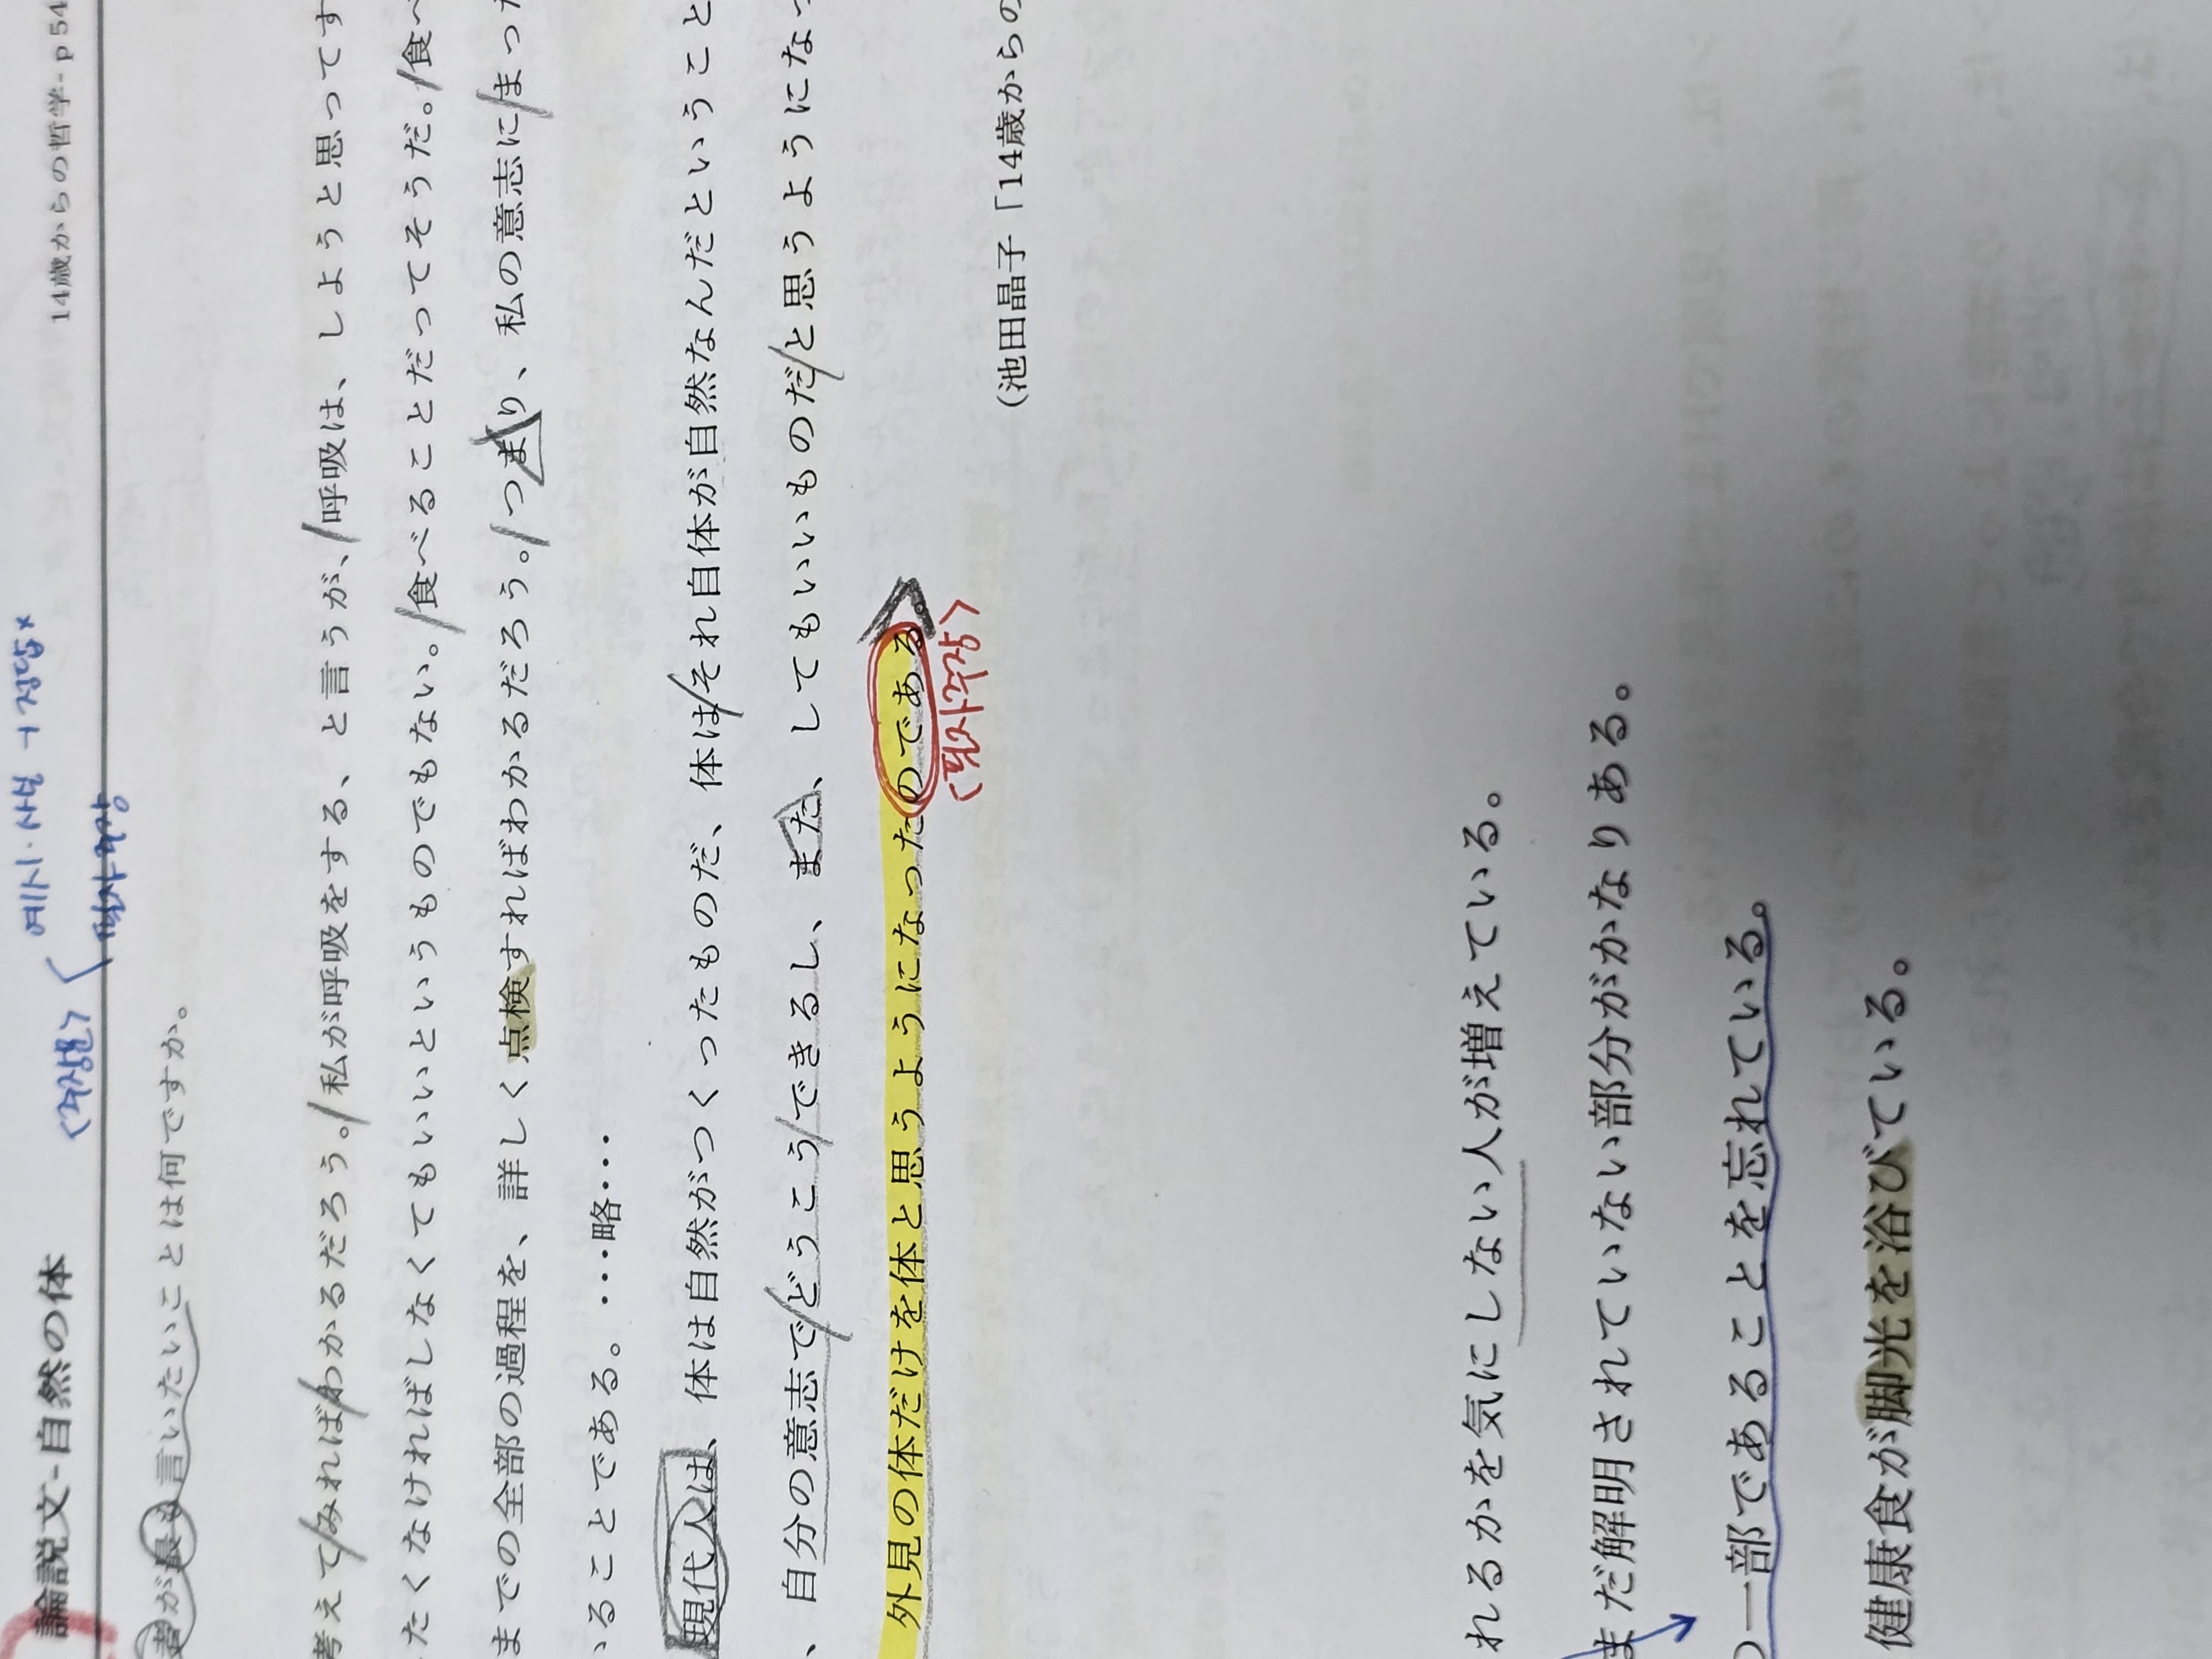 論説文-自然の体
14歳からの哲学- p 54
<주장문>
예시·사실 → 정답×
필자 주장
者が最も言いたいことは何ですか。
考えてみればわかるだろう。私が呼吸をする、と言うが、呼吸は、しようと思ってす
たくなければしなくてもいいというものでもない。食べることだってそうだ。食べ
までの全部の過程を、詳しく点検すればわかるだろう。つまり、私の意志にまった
いることである。・・・略・・・
現代人は、体は自然がつくったものだ、体はそれ自体が自然なんだということ
、自分の意志でどうこうできるし、また、してもいいものだと思うようになっ
外見の体だけを体と思うようになったのである。
<필자주장>
(池田晶子「14歳からの
れるかを気にしない人が増えている。
まだ解明されていない部分がかなりある。
の一部であることを忘れている。
健康食が脚光を浴びている。